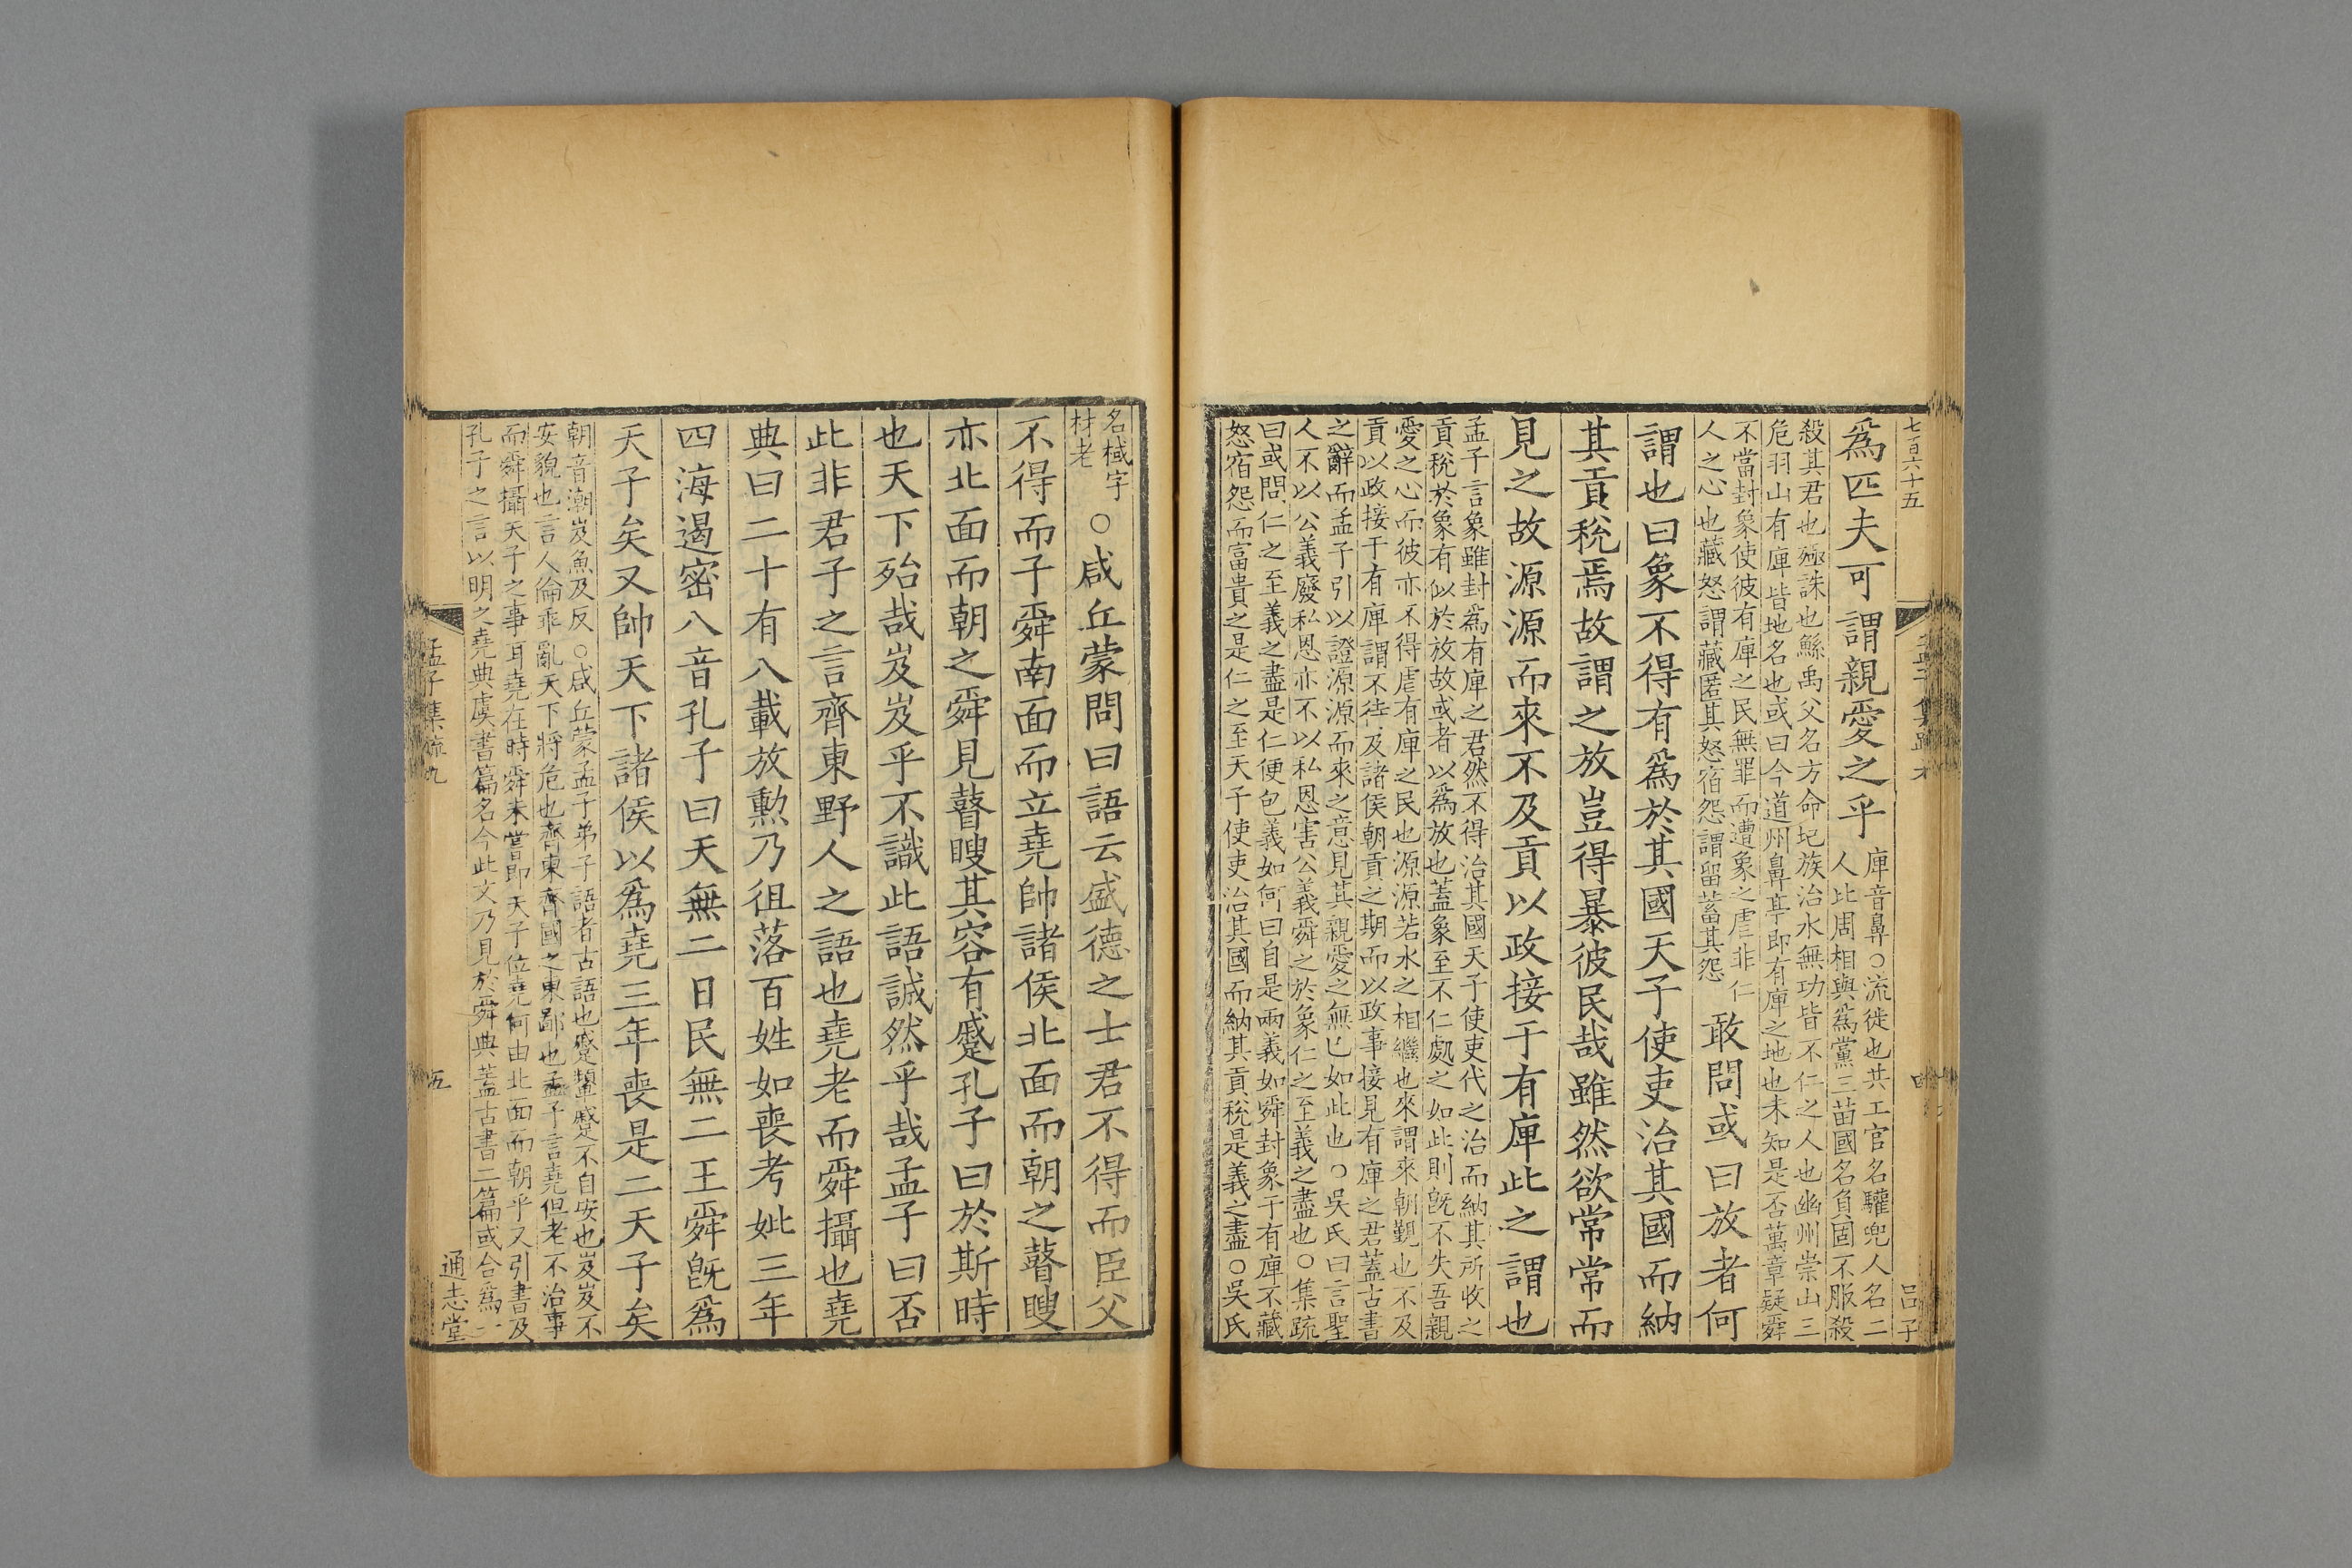 七百六十五
呂子
爲匹夫可謂親愛之乎
庳音鼻○流徙也共工官名驩兜人名二
人此周相與爲黨三苗國名負固不服殺
殺其君也殛誅也鯀禹父名方命圮族治水無功皆不仁之人也幽州崇山三
危羽山有庳皆地名也或曰今道州鼻亭即有庳之地也未知是否萬章疑舜
不當封象使彼有庳之民無罪而遭象之虐非仁
人之心也藏怒謂藏匿其怒宿怨謂留蓄其怨
敢問或曰放者何
謂也曰象不得有爲於其國天子使吏治其國而納
其貢稅焉故謂之放豈得暴彼民哉雖然欲常常而
見之故源源而來不及貢以政接于有庳此之謂也
孟子言象雖封爲有庳之君然不得治其國天子使吏代之治而納其所收之
貢稅於象有似於放故或者以爲放也蓋象至不仁處之如此則旣不失吾親
愛之心而彼亦不得虐有庳之民也源源若水之相繼也來謂來朝覲也不及
貢以政接于有庳謂不待及諸侯朝貢之期而以政事接見有庳之君蓋古書
之辭而孟子引以證源源而來之意見其親愛之無已如此也○吳氏曰言聖
人不以公義廢私恩亦不以私恩害公義舜之於象仁之至義之盡也○集疏
曰或問仁之至義之盡是仁便包義如何曰自是兩義如舜封象于有庳不藏
怒宿怨而富貴之是仁之至天子使吏治其國而納其貢稅是義之盡○吳氏
名棫字
材老
○咸丘蒙問曰語云盛德之士君不得而臣父
不得而子舜南面而立堯帥諸侯北面而朝之瞽瞍
亦北面而朝之舜見瞽瞍其容有蹙孔子曰於斯時
也天下殆哉岌岌乎不識此語誠然乎哉孟子曰否
此非君子之言齊東野人之語也堯老而舜攝也堯
典曰二十有八載放勲乃徂落百姓如喪考妣三年
四海遏密八音孔子曰天無二日民無二王舜旣爲
天子矣又帥天下諸侯以爲堯三年喪是二天子矣
朝音潮岌魚及反○咸丘蒙孟子弟子語者古語也蹙顰蹙不自安也岌岌不
安貌也言人倫乖亂天下將危也齊東齊國之東鄙也孟子言堯但老不治事
而舜攝天子之事耳堯在時舜未嘗即天子位堯何由北面而朝乎又引書及
孔子之言以明之堯典虞書篇名今此文乃見於舜典蓋古書二篇或合爲一
孟子集疏九
五
通志堂